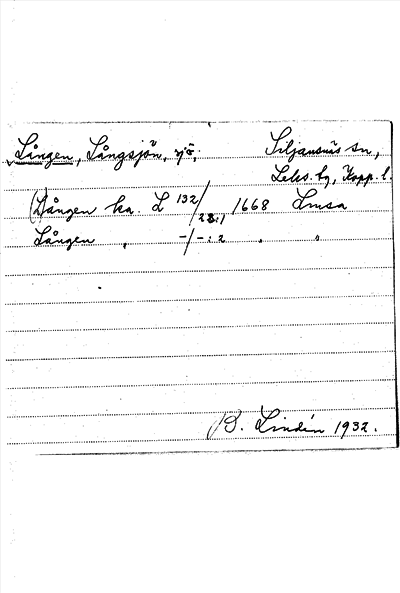 Lången, Långsjön, sjö; Siljansnäs sn,
Leks. tg, Kopp. l.
(Lången ka. L 132/28:1 1668 Lmsa
Lången " -/-:2 " "
B. Lindén 1932.